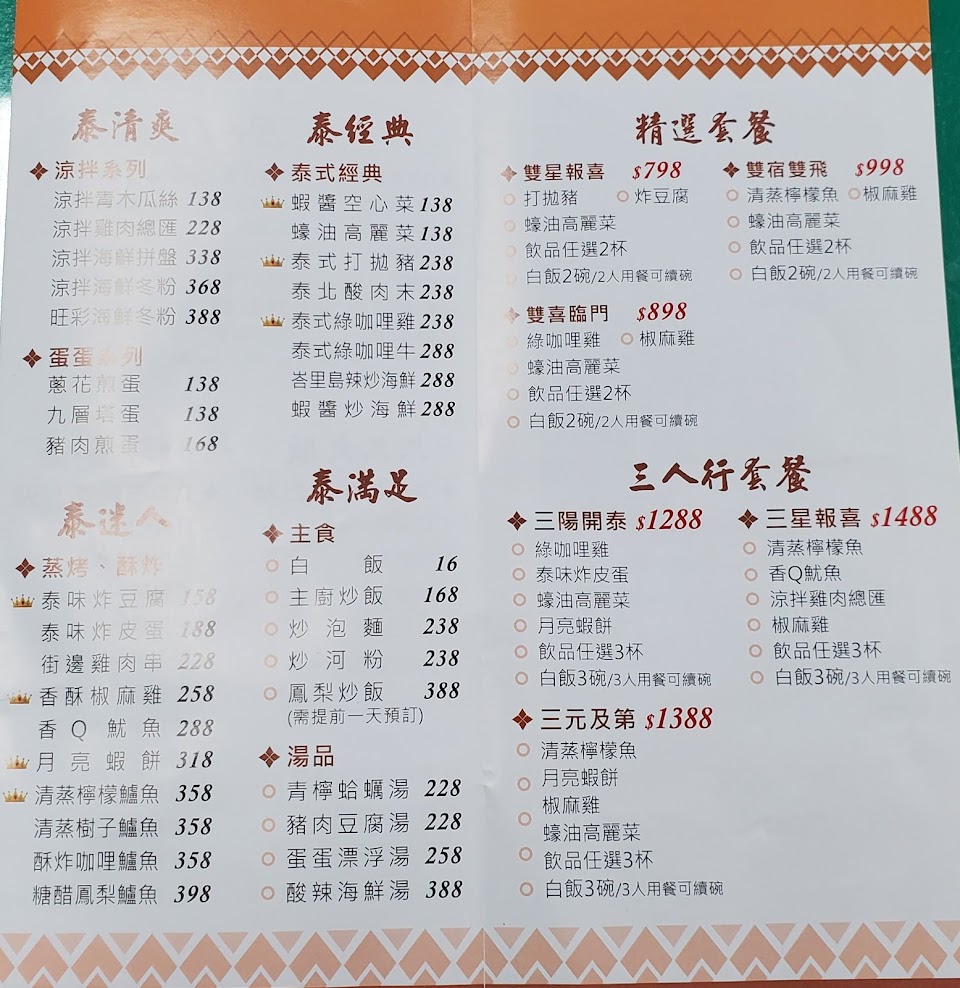 泰清爽
涼拌系列
涼拌青木瓜絲 138
涼拌雞肉總匯 228
涼拌海鮮拼盤 338
涼拌海鮮冬粉 368
旺彩海鮮冬粉 388
蛋蛋系列
蔥花煎蛋 138
九層塔蛋 138
豬肉煎蛋 168
泰迷人
蒸烤、酥炸
泰味炸豆腐 158
泰味炸皮蛋 188
街邊雞肉串 228
香酥椒麻雞 258
香Q魷魚 288
月亮蝦餅 318
清蒸檸檬鱸魚 358
清蒸樹子鱸魚 358
酥炸咖哩鱸魚 358
糖醋鳳梨鱸魚 398
泰經典
泰式經典
蝦醬空心菜 138
蠔油高麗菜 138
泰式打拋豬 238
泰北酸肉末 238
泰式綠咖哩雞 238
泰式綠咖哩牛 288
峇里島辣炒海鮮 288
蝦醬炒海鮮 288
泰滿足
主食
白飯 16
主廚炒飯 168
炒泡麵 238
炒河粉 238
鳳梨炒飯 388
(需提前一天預訂)
湯品
青檸蛤蠣湯 228
豬肉豆腐湯 228
蛋蛋漂浮湯 258
酸辣海鮮湯 388
精選套餐
雙星報喜 $798
打拋豬 炸豆腐
蠔油高麗菜
飲品任選2杯
白飯2碗/2人用餐可續碗
雙宿雙飛 $998
清蒸檸檬魚 椒麻雞
蠔油高麗菜
飲品任選2杯
白飯2碗/2人用餐可續碗
雙喜臨門 $898
綠咖哩雞 椒麻雞
蠔油高麗菜
飲品任選2杯
白飯2碗/2人用餐可續碗
三人行套餐
三陽開泰 $1288
綠咖哩雞
泰味炸皮蛋
蠔油高麗菜
月亮蝦餅
飲品任選3杯
白飯3碗/3人用餐可續碗
三星報喜 $1488
清蒸檸檬魚
香Q魷魚
涼拌雞肉總匯
椒麻雞
飲品任選3杯
白飯3碗/3人用餐可續碗
三元及第 $1388
清蒸檸檬魚
月亮蝦餅
椒麻雞
蠔油高麗菜
飲品任選3杯
白飯3碗/3人用餐可續碗